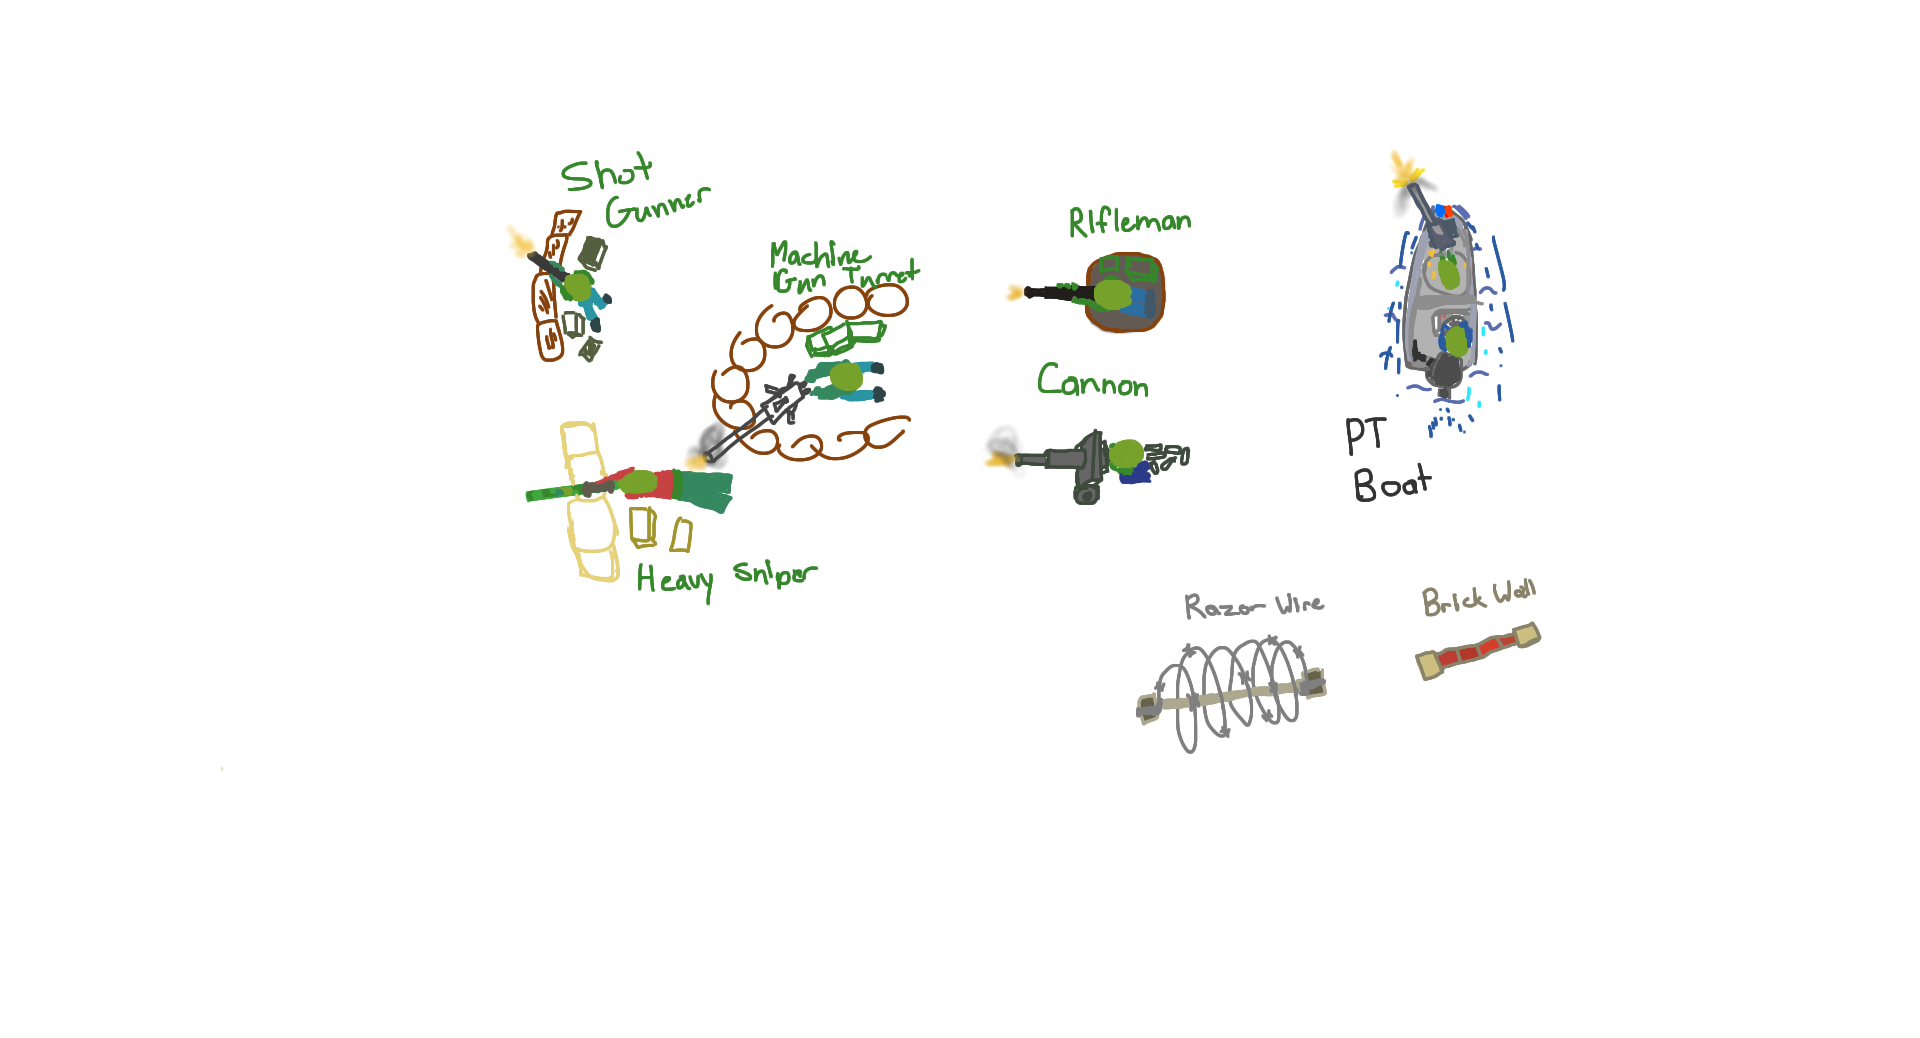 Shot
Gunner
Machine
Gun Turret
Rifleman
Cannon
PT
Boat
Heavy Sniper
Razor Wire
Brick Wall